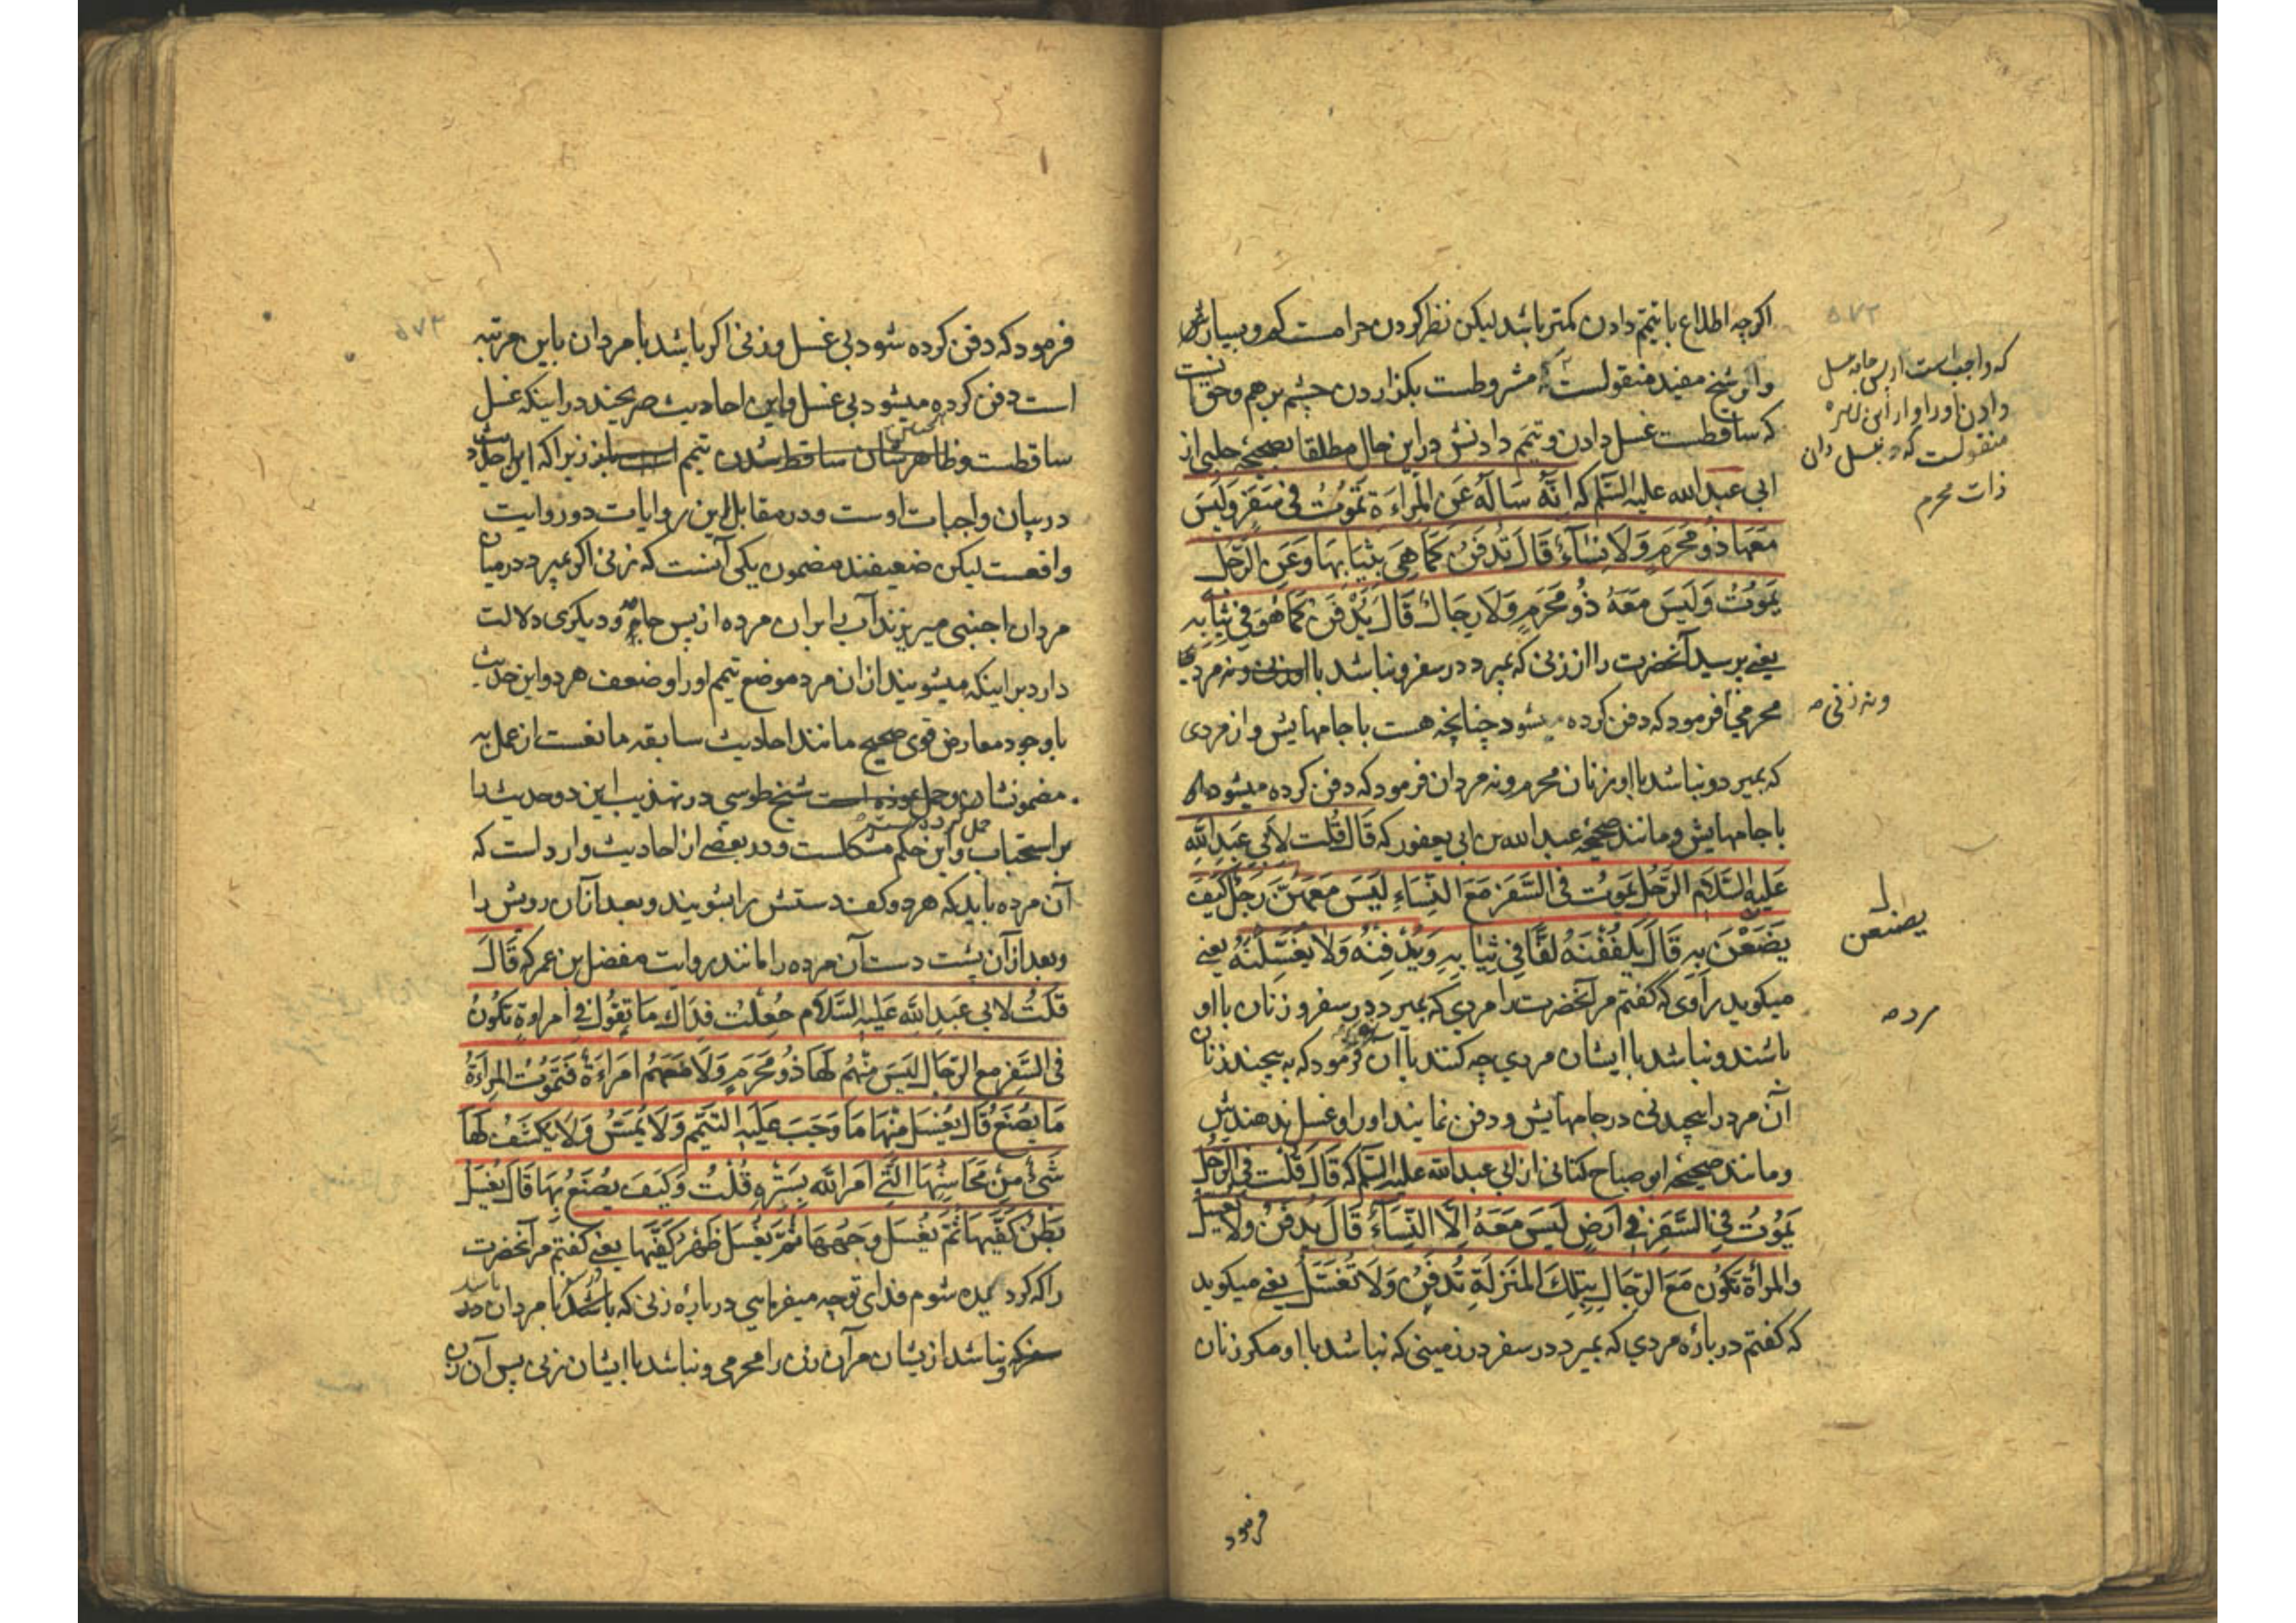 ۵۷۲
اگرچه اطلاع با تیمم دادن کمتر باشد لیکن نظر کردن حرامست کم و بسیارش
و از شیخ مفید منقولست که مشروطست بگزاردن چشم برهم و حق آنست
که ساقطست غسل دادن و تیمم دادنش در این حال مطلقا بصحیحه حلبی از
ابی عبد الله علیه السّلم که اِنَّهُ سَالَهُ عَنِ الْمَراءَةِ تَمُوْتُ فی سَفَرٍ وَلَیْسَ
مَعَهَا ذُو مَحْرَمٍ وَلَا نِسَآءٌ قَالَ تُدْفَنُ کَمَا هِیَ بِثِیَابِهَا وَعَنِ الرَّجُلِ
یَمُوتُ وَلَیسَ مَعَهُ ذُو مَحْرَمٍ وَلَا رِجَالٌ قَالَ یُدْفَنُ کَمَا هُوَ فِی ثِیَابِهِ
یعنی پرسید آنحضرت را از زنی که بمیرد در سفر و نباشد با او ونه مردی
محرمی فرمود که دفن کرده میشود چنانچه هست با جامهایش و از مردی
که بمیرد و نباشد با او زنان محرم و نه مردان فرمود که دفن کرده میشود
با جامهایش و مانند صحیحه عبد الله بن ابی یعفور که قَالَ قُلت لاَبی عَبدِ اللّهِ
عَلَیهِ السَّلَام الرَّجُل یَمُوتُ فی السَّفَرِ مَعَ النِّسَاءِ لَیسَ مَعَهُنَّ رَجُلٌ کَیْفَ
یَصْنَعْنَ بِهِ قَالَ یَلْفُفْنَهُ لَفًّا فِی ثِیَابِهِ وَیَدْفِنَّهُ وَلَا یُغَسِّلْنَهُ یعنی
میگوید راوی که گفتم مر آنحضرت را مردی که بمیرد در سفر و زنان با او
باشند و نباشد با ایشان مردی چه کنند با آن فرمود که به پیچند زنان
آن مرد را پیچیدنی در جامهایش و دفن نمایند او را و غسل ندهندش
و مانند صحیحه ابو صباح کنانی از ابی عبد الله علیه السّلم که قَالَ قُلْت فِی الرَّجُلِ
یَمُوْتُ فِی السَّفَرِ فِی اَرضٍ لَیْسَ مَعَهُ اِلَّا النِّسَآءُ قَالَ یُدْفَنُ وَلَا یُغْسَلُ
وَالمراَةُ تَکُوْن مَعَ الرِّجَالِ بِتِلْکَ المَنْزِلَةِ تُدْفَنُ وَلَا تُغْسَلُ یعنی میگوید
که گفتم در باره مردی که بمیرد در سفر در زمینی که نباشد با او مگر زنان
که واجب است از پس جامه غسل
دادن او را و از ابن زهره
منقولست که غسل دادن
ذات محرم
ونه زنی
یصنعن
مرده
فرمود
۵۷۳
فرمود که دفن کرده شود بی غسل و زنی اگر باشد با مردان باین مرتبه
است دفن کرده میشود بی غسل و این احادیث صریحند در اینکه غسل
ساقطست و ظاهرشان ساقط شدن تیمم است نیز زیرا که این احادیث
در بیان واجبات اوست و در مقابل این روایات دو روایت
واقعست لیکن ضعیفند مضمون یکی آنست که زنی اگر بمیرد در میان
مردان اجنبی میریزند آب را بران مرده از پس جامه و دیگری دلالت
دارد براینکه میشویند ازان مرد موضع تیمم او را و ضعف هردو این حدیث
باوجود معارض قوی صحیح مانند احادیث سابقه مانعست از عمل به
مضمونشان و حمل نموده است شیخ طوسی در تهذیب این دو حدیث را
حمل کرده است
بر استحباب و این حکم مشکلست و در بعضی از احادیث وارد است که
آن مرده باید که هردو کف دستش را بشویند و بعد ازآن رویش را
و بعد ازآن پشت دست آن مرده را مانند روایت مفضل بن عمر که قَالَ
قُلْتُ لابی عَبدِ اللَّه عَلَیهِ السَّلَام جُعِلْتُ فِدَاکَ مَا تَقُوْلُ فِی امراَةٍ تَکُونُ
فی السَّفَرِ مَعَ الرِّجَالِ لَیْسَ مِنْهُم لَهَا ذُو مَحْرَمٍ وَلَا مَعَهُم امرَاءَةٌ فَتَمُوْتُ المراَةُ
مَا یُصْنَعُ قَالَ یُغْسَلُ مِنْهَا مَا وَجَبَ عَلَیهِ التَّیَمُّم وَلَا یُمَسُّ وَلَا یُکْشَفُ لَهَا
شَیءٌ مِنْ مَحَاسِنِهَا الَّتِی اَمَرَ اللَّهُ بِسَتْرِهِ قُلْتُ وَکَیْفَ یُصْنَعُ بِهَا قَالَ یُغْسَلُ
بَطْنُ کَفَّیْهَا ثُمَّ یُغْسَلُ وَجْهُهَا ثُمَّ یُغْسَلُ ظَهْرُ کَفَّیْهَا یعنی گفتم مر آنحضرت
را که گردانیده شوم فدای تو چه میفرمایی در باره زنی که باشد با مردان در
سفر که و نباشد ازیشان مرآن زن را محرمی و نباشد با ایشان زنی پس آن زن